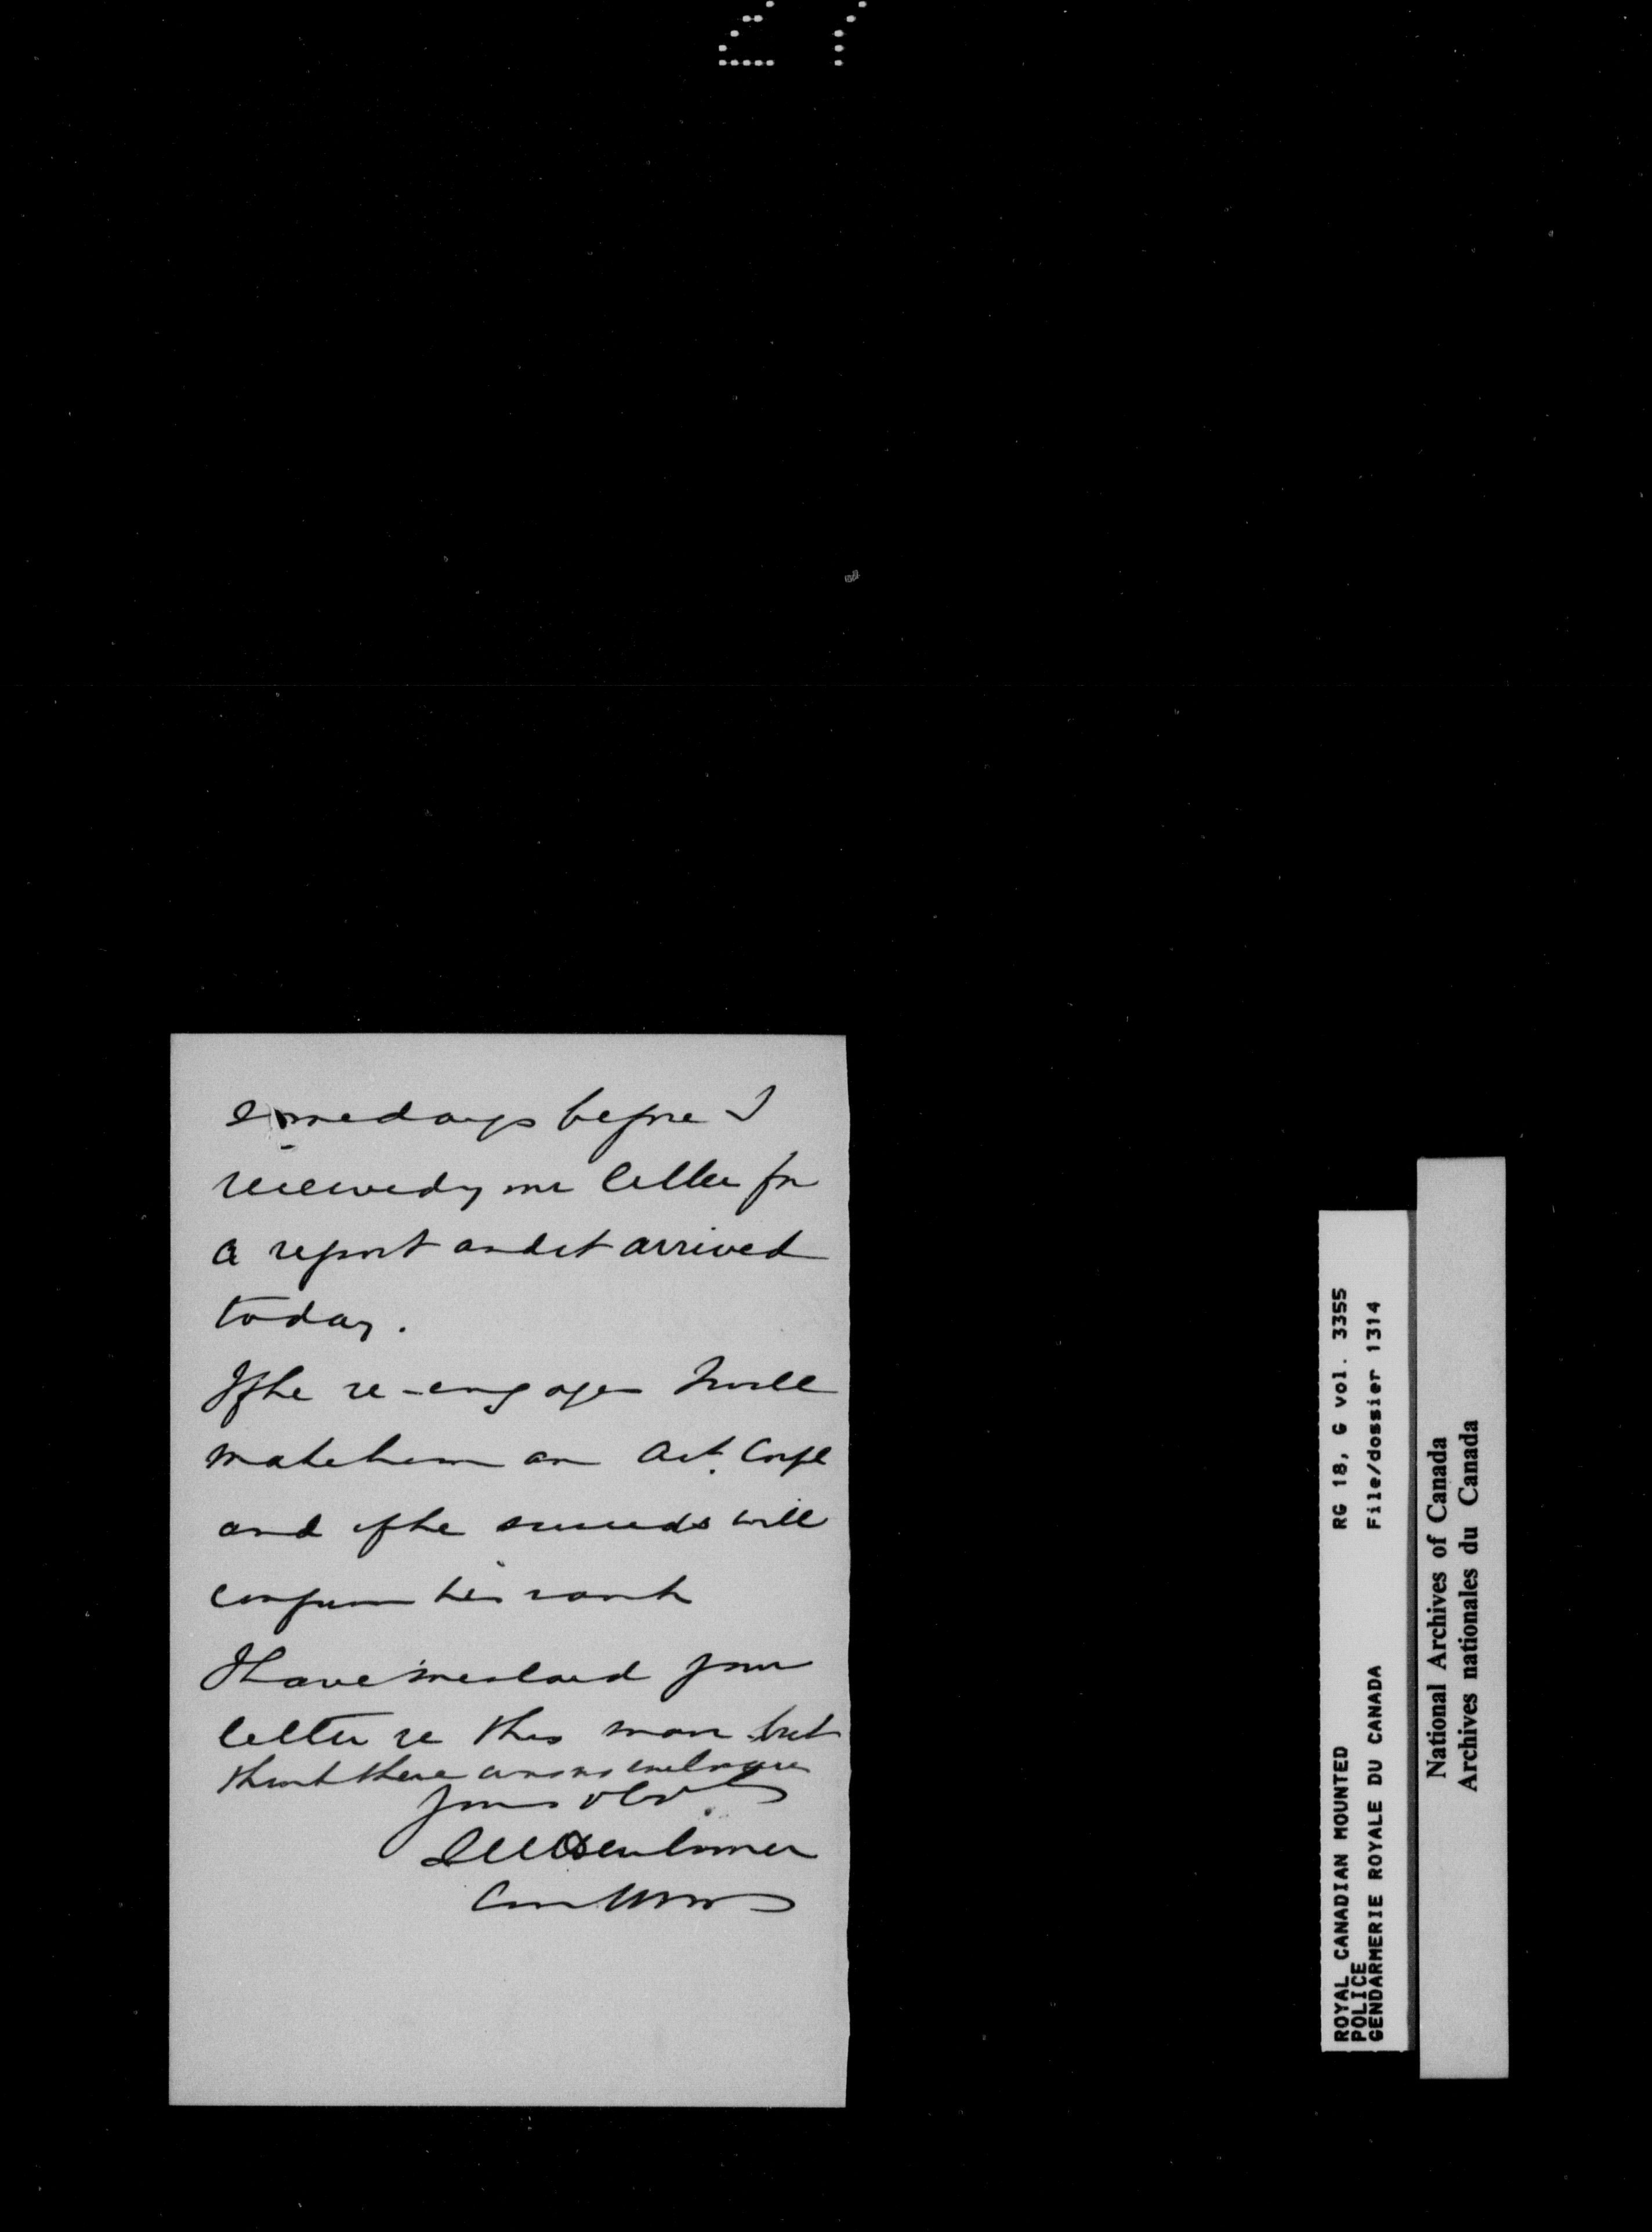 some days before I
received your letter for
a report and it arrived
today.
If he re-engages I will
make him an Act. Corpl
and if he succeeds will
confirm his rank
I have mislaid your
letter re this man but
think there was no enclosure
Yours
Com
ROYAL CANADIAN MOUNTED
POLICE
GENDARMERIE ROYALE DU CANADA
RG 18, G vol. 3355
File/dossier 1314
National Archives of Canada
Archives nationales du Canada